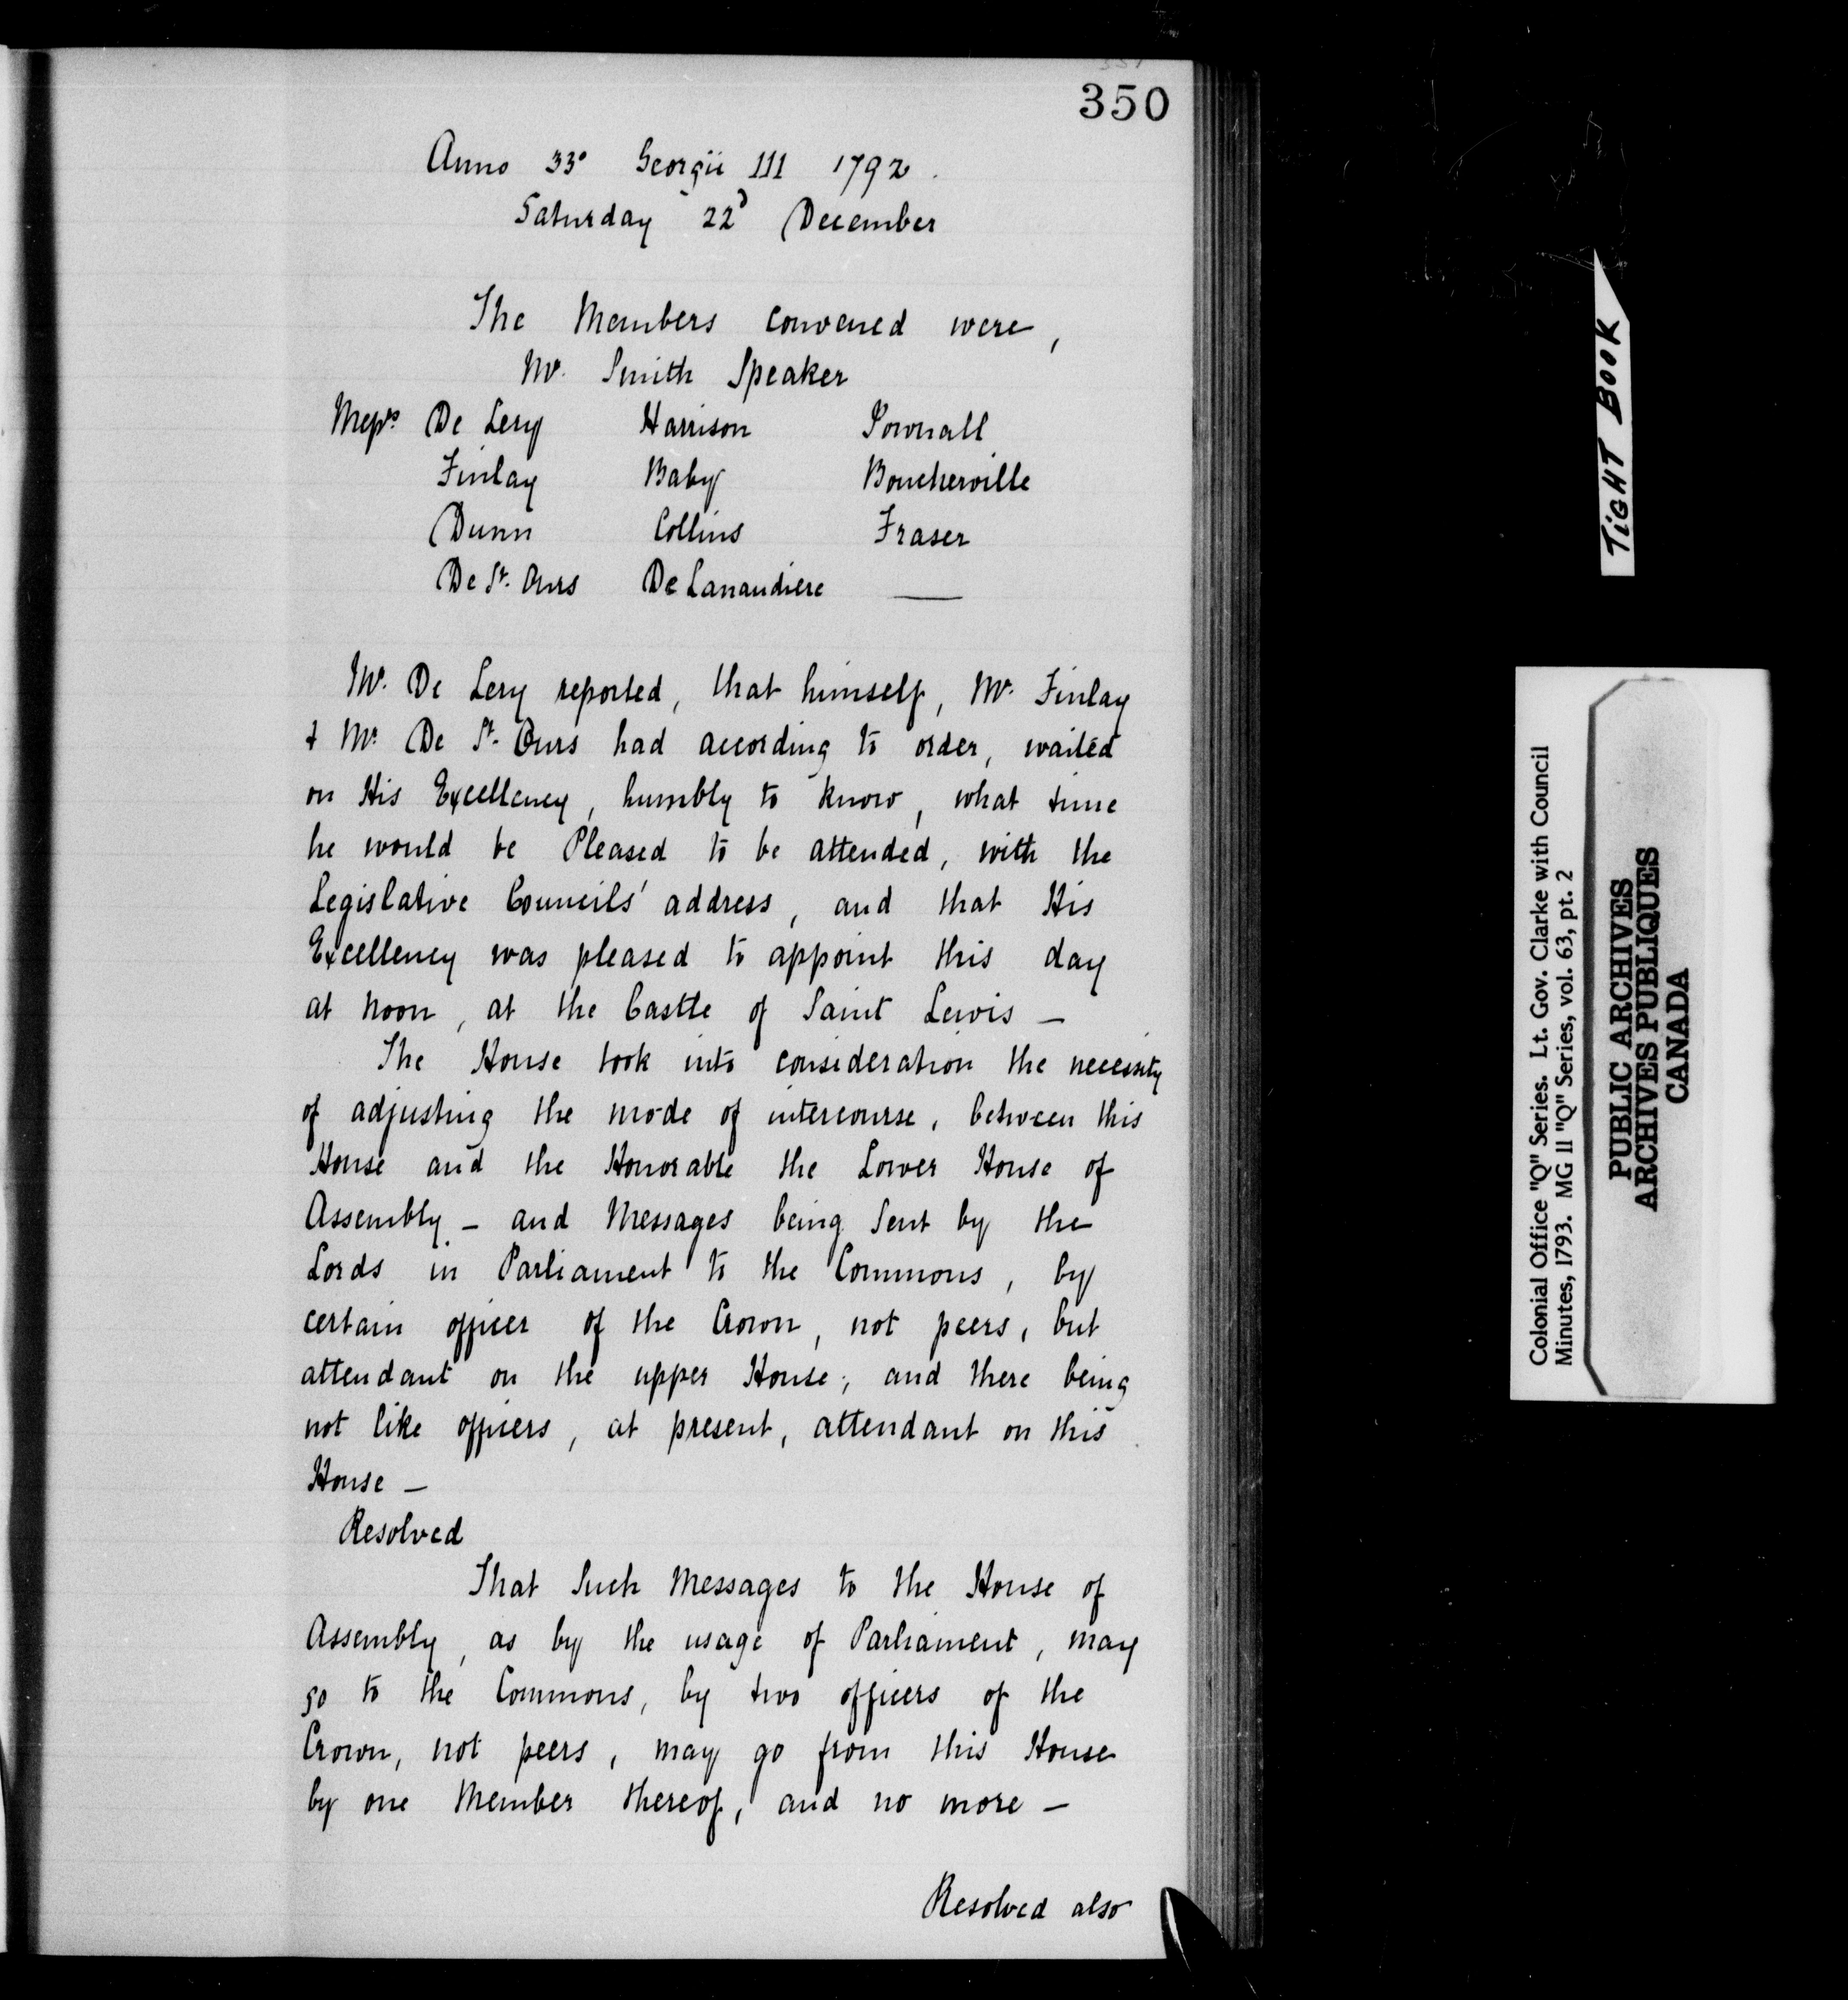 350
Anno 33° Georgii III 1792.
Saturday 22d December
The Members convened were,
Mr. Smith Speaker
Messrs De Lery Harrison Pownall
Finlay Baby Boucherville
Dunn Collins Fraser
De St. Ours De Lanaudiere —
Mr. De Lery reported, that himself, Mr. Finlay
& Mr. De St. Ours had according to order, waited
on His Excellency, humbly to know, what time
he would be Pleased to be attended, with the
Legislative Councils' address, and that His
Excellency was pleased to appoint this day
at noon, at the Castle of Saint Lewis —
The House took into consideration the necessity
of adjusting the mode of intercourse, between this
House and the Honorable the Lower House of
Assembly — and Messages being Sent by the
Lords in Parliament to the Commons, by
certain officer of the Crown, not peers, but
attendant on the upper House; and there being
not like officers, at present, attendant on this
House —
Resolved
That Such Messages to the House of
Assembly, as by the usage of Parliament, may
go to the Commons, by two officers of the
Crown, not peers, may go from this House
by one Member thereof, and no more —
Resolved also
TIGHT BOOK
Colonial Office "Q" Series. Lt. Gov. Clarke with Council
Minutes, 1793. MG 11 "Q" Series, vol. 63, pt. 2
PUBLIC ARCHIVES
ARCHIVES PUBLIQUES
CANADA